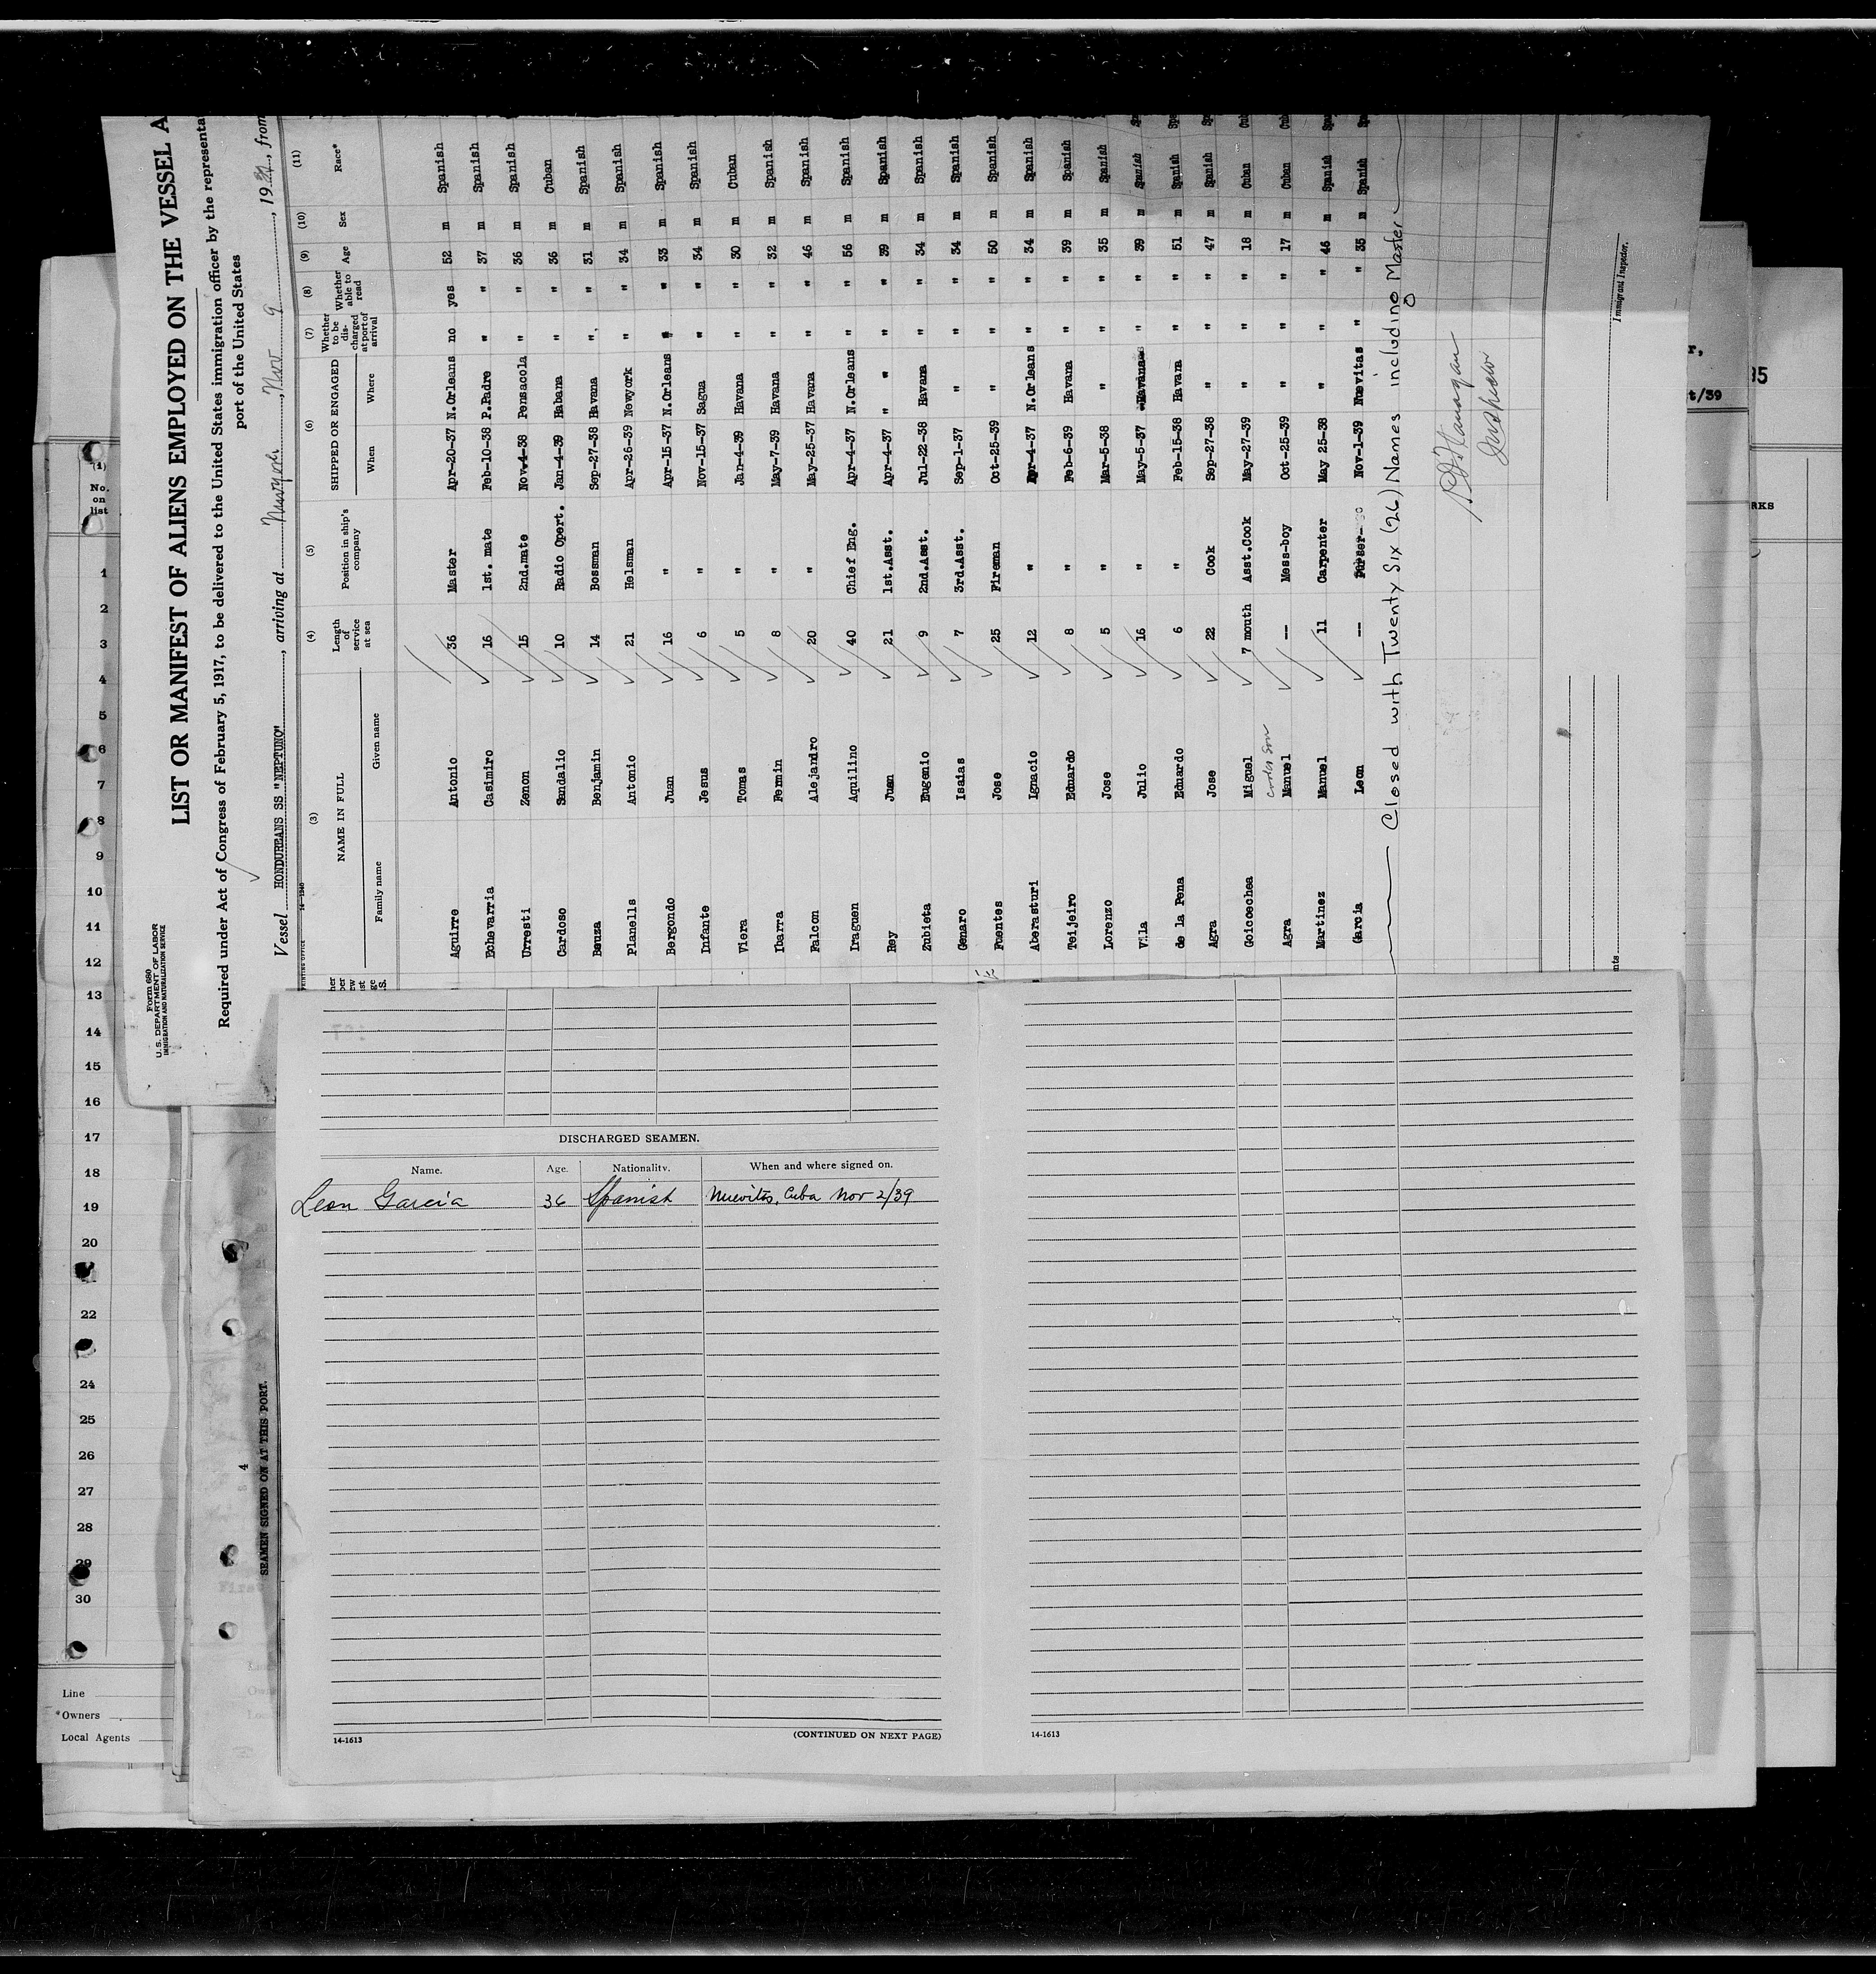 Form 680
U. S. DEPARTMENT OF LABOR
IMMIGRATION AND NATURALIZATION SERVICE
LIST OR MANIFEST OF ALIENS EMPLOYED ON THE VESSEL A
Required under Act of Congress of February 5, 1917, to be delivered to the United States immigration officer by the representa
port of the United States
Vessel HONDUREANS SS "NEPTUNO", arriving at Newyork, Nov 9, 19, from
14—1240
(3) (4) (5) (6) (7) (8) (9) (10) (11)
NAME IN FULL
Family name Given name
Length of service at sea
Position in ship's company
SHIPPED OR ENGAGED
When Where
Whether to be discharged at port of arrival
Whether able to read
Age
Sex
Race*
Aguirre Antonio 36 Master Apr-20-37 N.Orleans no yes 52 m Spanish
Echevarria Casimiro 16 1st. mate Feb-10-38 P.Padre " " 37 m Spanish
Urresti Zenon 15 2nd.mate Nov.4-38 Pensacola " " 36 m Spanish
Cardoso Sandalio 10 Radio Opert. Jan-4-39 Habana " " 36 m Cuban
Beuza Benjamin 14 Bossman Sep-27-38 Havana " " 31 m Spanish
Planells Antonio 21 Helsman Apr-26-39 Newyork " " 34 m Spanish
Bergondo Juan 16 " Apr-15-37 N.Orleans " " 33 m Spanish
Infante Jesus 6 " Nov-15-37 Sagua " " 34 m Spanish
Viera Tomas 5 " Jan-4-39 Havana " " 30 m Cuban
Ibarra Fermin 8 " May-7-39 Havana " " 32 m Spanish
Falcon Alejandro 20 " May-25-37 Havana " " 46 m Spanish
Iraguen Aquilino 40 Chief Eng. Apr-4-37 N.Orleans " " 56 m Spanish
Rey Juan 21 1st.Asst. Apr-4-37 " " " " 39 m Spanish
Zubieta Eugenio 9 2nd.Asst. Jul-22-38 Havana " " 34 m Spanish
Genaro Isaias 7 3rd.Asst. Sep-1-37 " " " 34 m Spanish
Fuentes Jose 25 Fireman Oct-25-39 " " " 50 m Spanish
Aberasturi Ignacio 12 " Apr-4-37 N.Orleans " " 34 m Spanish
Teijeiro Eduardo 8 " Feb-6-39 Havana " " 39 m Spanish
Lorenzo Jose 5 " Mar-5-38 " " " 35 m Spanish
Vila Julio 16 " May-5-37 Havana " " 39 m Spanish
de la Pena Eduardo 6 " Feb-15-38 Havana " " 51 m Spanish
Agra Jose 22 Cook Sep-27-38 " " " 47 m Spanish
Goicoechea Miguel 7 mouth Asst.Cook May-27-39 " " " 18 m Cuban
cooks son
Agra Manuel -- Mess-boy Oct-25-39 " " " 17 m Cuban
Martinez Manuel 11 Carpenter May 25-38 " " " 46 m Spanish
Garcia Leon -- Nov-1-39 Nuevitas " " 35 m Spanish
Closed with Twenty Six (26) Names including Master
Immigrant Inspector.
(1)
No.
on
list
1
2
3
4
5
6
7
8
9
10
11
12
13
14
15
16
17
18
19
20
22
24
25
26
27
28
29
30
Line
*Owners
Local Agents
4
SEAMEN SIGNED ON AT THIS PORT.
First
35
t/39
RKS
DISCHARGED SEAMEN.
Name. Age. Nationality. When and where signed on.
Leon Garcia 36 Spanish Nuevitas, Cuba Nov 2/39
14-1613
(CONTINUED ON NEXT PAGE)
14-1613